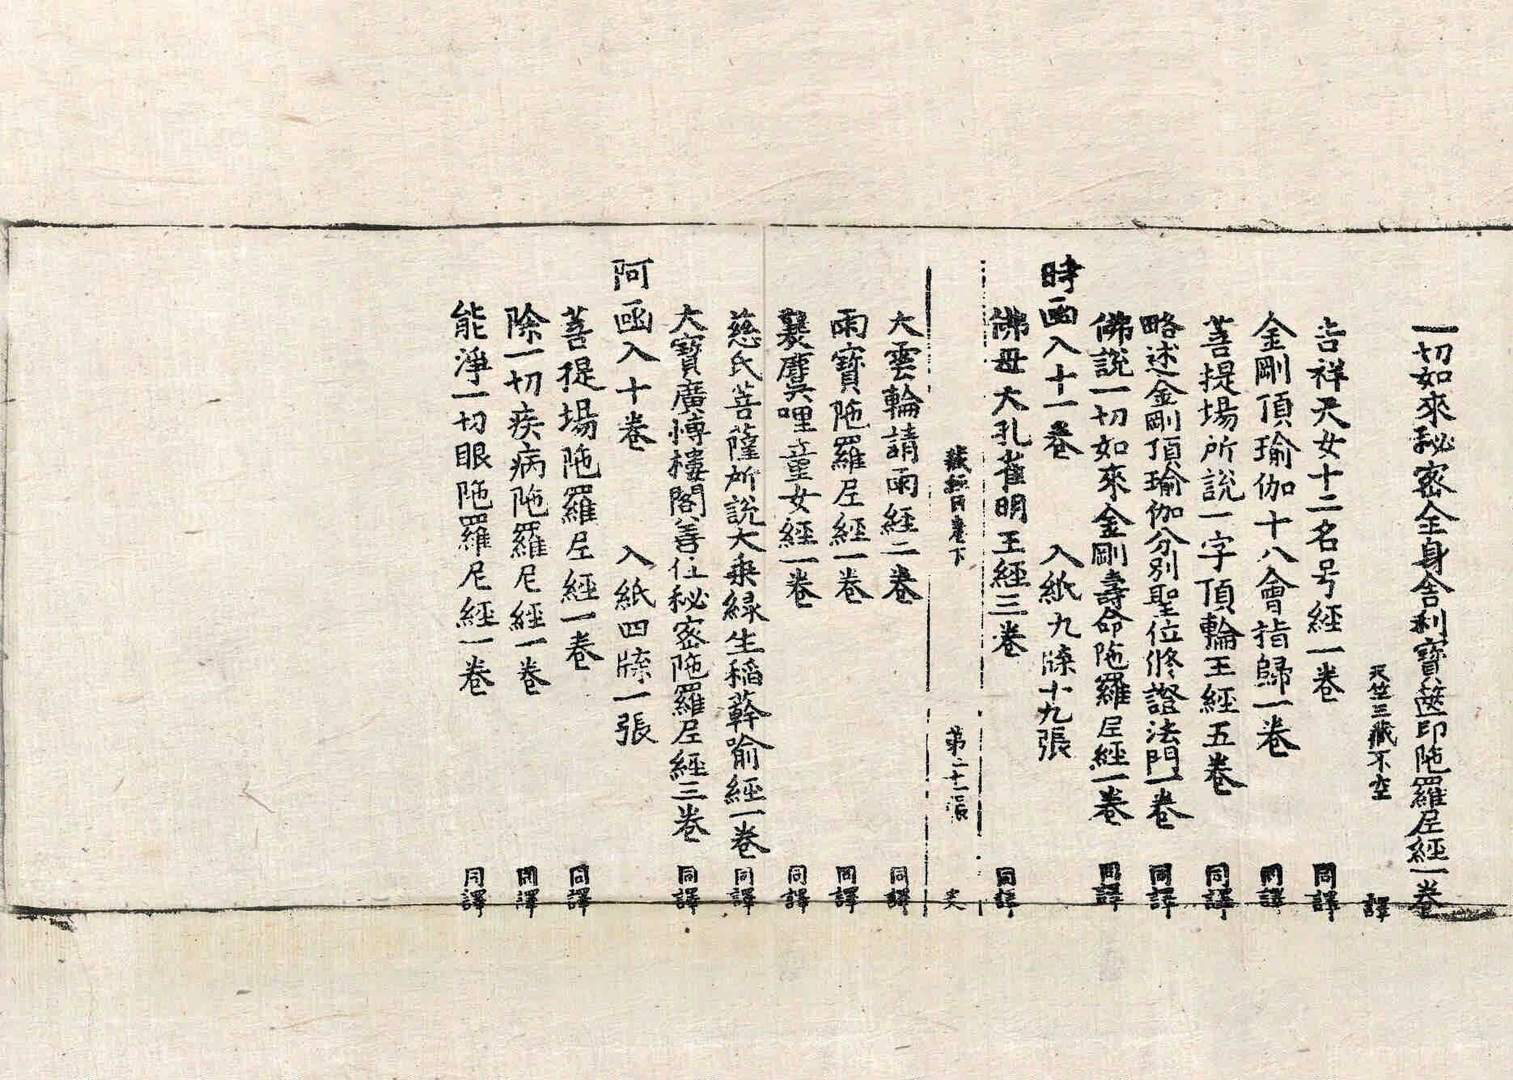 一切如來秘密全身舍利寶篋印陁羅尼經一卷
天竺三藏不空 譯
吉祥天女十二名号經一卷 同譯
金剛頂瑜伽十八會指歸一卷 同譯
菩提場所説一字頂輪王經五卷 同譯
略述金剛頂瑜伽分別聖位修證法門一卷 同譯
佛說一切如來金剛壽命陁羅尼經一卷 同譯
時函入十一卷 入紙九牒十九張
佛母大孔雀明王經三卷 同譯
藏經目卷下 第二十二張 史
大雲輪請雨經二卷 同譯
雨寶陁羅尼經一卷 同譯
蘘麌哩童女經一卷 同譯
慈氏菩薩所説大乘緑生稲䕀喻經一卷 同譯
大寶廣博樓閣善住秘密陁羅尼經三卷 同譯
阿函入十卷 入紙四牒一張
菩提場陁羅尼經一卷 同譯
除一切疾病陁羅尼經一卷 同譯
能淨一切眼陁羅尼經一卷 同譯